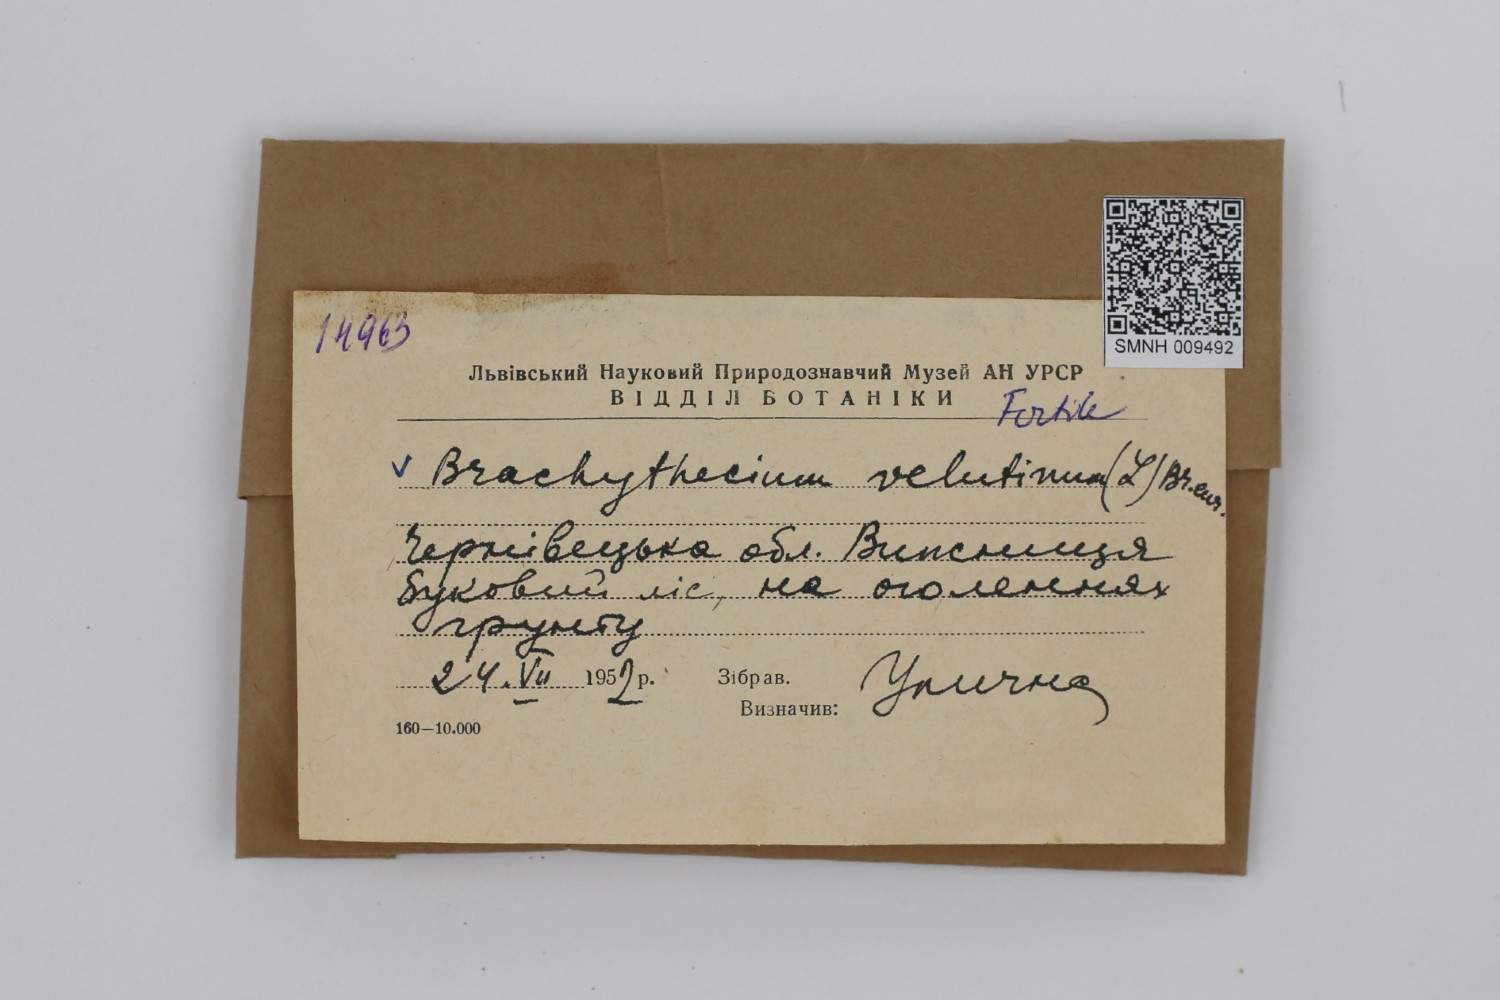 SMNH 009492
14963
Львівський Науковий Природознавчий Музей АН УРСР
ВІДДІЛ БОТАНІКИ
Fertile
v Brachythecium velutinum (L) Br. eur.
Чернівецька обл. Вижниця
буковий ліс, на оголеннях
грунту
24. VII 1952 р. Зібрав. Улична
Визначив:
160—10.000